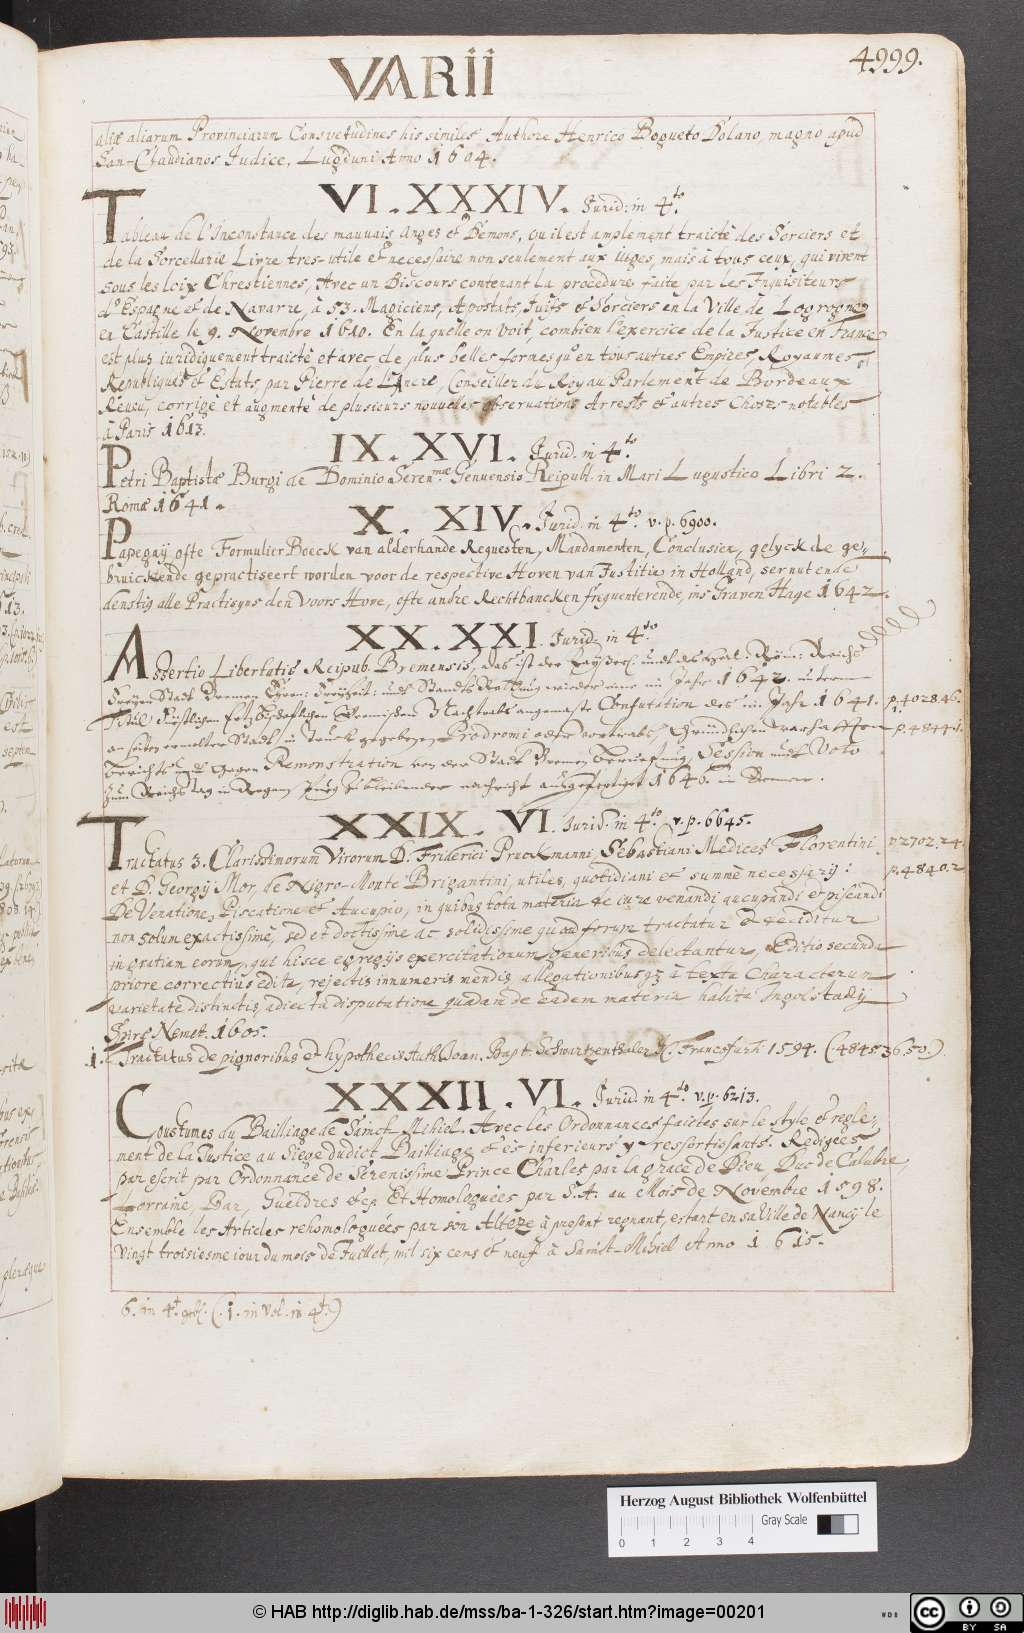 VARII
4999.
aliæ aliarum Provinciarum Consvetudines his similes, Authore Henrico Bogueto Dolano, magno apud
San-Claudianos Iudice, Lugduni Anno 1604.
VI. XXXIV. Jurid: in 4.to
Tableau de l'Inconstance des mauvais Anges et Démons, ou il est amplement traicté des Sorciers et
de la Sorcellarie Livre tres-utile et necessaire non seulement aux iuges, mais à tous ceux, qui vivent
sous les loix Chrestiennes, Avec un Discours contenant la procedure faite par les Inquisiteurs
d'Espagne et de Navarre, à 53. Magiciens, Apostats, Juifs et Sorciers en la Ville de Logrogne
en Castille le 9. Novembre 1610. En laquelle on voit, combien l'exercice de la Justice en France
est plus iuridiquement traicté et avec de plus belles formes qu'en tous autres Empires, Royaumes
Republiques et Estats, par Pierre de l'Ancre, Conseiller du Roy au Parlement de Bordeaux
Reueu, corrigé et augmenté de plusieurs nouvelles observations Arrests et autres Choses notables
à Paris 1613.
IX. XVI. Jurid. in 4.to
Petri Baptistæ Burgi de Dominio Seren.mæ Genuensis Reipubl. in Mari Lugustico Libri 2.
Romæ 1641.
X. XIV. Jurid. in 4.to v. p. 6900.
Papegaij ofte Formulier Boeck van alderhande Requesten, Mandamenten, Conclusien, gelyck de ge-
bruickende gepractiseert worden voor de respective Hoven van Justitie in Holland, ser nut ende
denstig alle Practisyns den Voors Hove, ofte andre Rechtbancken frequenterende, ins Graven Hage 1642.
XX. XXI. Jurid. in 4.to
Assertio Libertatis Reipub. Bremensis, Das ist der Kayserl. und des Heil. Röm. Reichs
Freyen Stadt Bremen Ehren: Freyheit: und Standts Rettung wieder eine im Jahr 1642. unterm
Titul Fürstlichen Ertzbischofflichen Bremischen Nachtrabs angemaste Confutation des im Jahr 1641. p. 4028.46.
an seiten ermelter Stadt in Truck gegebenen Prodromi oder vortrabs, Gründhafften warhafften p. 4844.1.
berichts und gegen Remonstration von der Stadt Bremen berueffung, Session und Voto
zum Reichstag in Regenspurg zu bleibender nachricht ausgefertiget 1646. in Bremen.
XXIX. VI. Jurid. in 4.to v. p. 6645.
Tractatus 3. Clarissimorum Virorum D. Friderici Pruckmanni, Sebastiani Medices Florentini p. 2702.24.
et D. Georgij Mor, de Nigro-Monte Brigantini, utiles, quotidiani et summè necessarij: p. 4840.2
De Venatione, Piscatione et Aucupio, in quibus tota materia de iure venandi aucupandi et piscandi
non solum exactissimè, sed et doctissime ac solidissime quoad forum tractatur et deciditur
in gratiam eorum, qui hisce egregijs exercitationum generibus delectantur, Editio secunda
priore correctius edita, rejectis innumeris mendis, allegationibusq; à textu Characterum
varietate distinctis, adiecta disputatione quadam de eadem materia habita Ingolstadij
Spiræ Nemet. 1605.
1. Tractatus de pignoribus et hypothecis Auth. Joan. Bapt. Schwartzenthaler JC. Francofurti 1594. (4845.36.50.)
XXXII. VI. Jurid. in 4.to v. p. 6213.
Coustumes du Bailliage de Sainct Mihiel. Avec les Ordonnances faictes sur le style et regle-
ment de la Justice au Siege dudict Bailliage et és inferieurs y ressortissants. Redigees
par escrit par Ordonnance de Serenissime Prince Charles par la grace de Dieu Duc de Calabre,
Lorraine, Bar, Gueldres etc. Et Homologuées par S. A. au Mois de Novembre 1598.
Ensemble les Articles rehomologuées par son Alteze à present regnant, estant en sa Ville de Nancy le
Vingt troisiesme iour du mois de Juillet, mil six cens et neuf à Sainct-Mihiel Anno 1615.
6. in 4.t geb. (.1. in Vol. in 4.t)
Herzog August Bibliothek Wolfenbüttel
0 1 2 3 4 Gray Scale
© HAB http://diglib.hab.de/mss/ba-1-326/start.htm?image=00201
WDB
CC BY SA